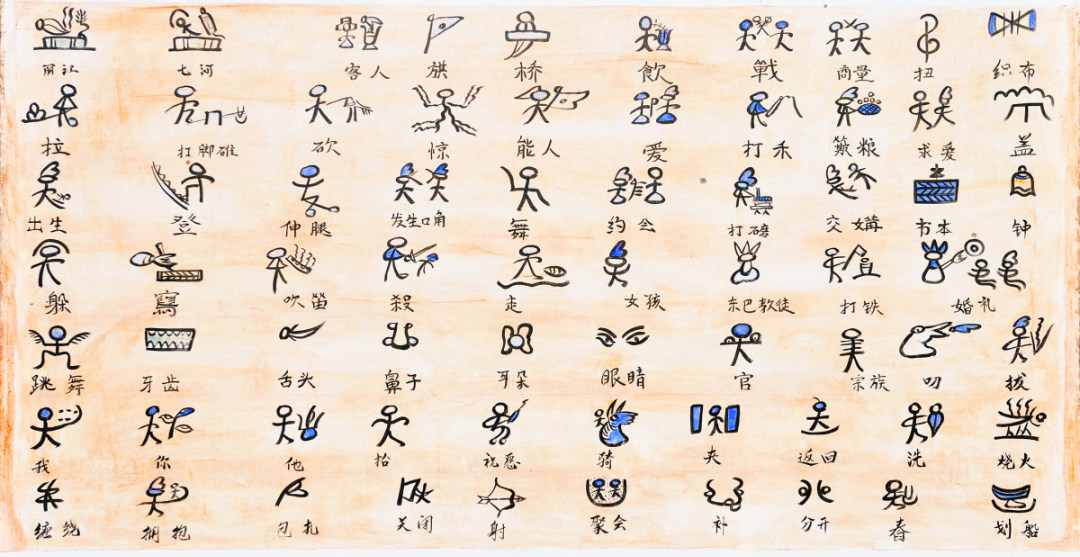 丽江 七河 客人 旗 桥 飲 戰 商量 扭 织布
拉 打脚碓 砍 惊 能人 爱 打禾 簸粮 求爱 盖
出生 登 伸腿 发生口角 舞 约会 打磨 交媾 书本 钟
躲 寫 吹笛 殺 走 女孩 东巴教徒 打铁 婚礼
跳舞 牙齿 舌头 鼻子 耳朵 眼睛 官 宗族 叨 拔
我 你 他 抬 祝愿 骑 夹 返回 洗 烧火
缠绕 拥抱 包扎 关闭 射 聚会 补 分开 舂 划船